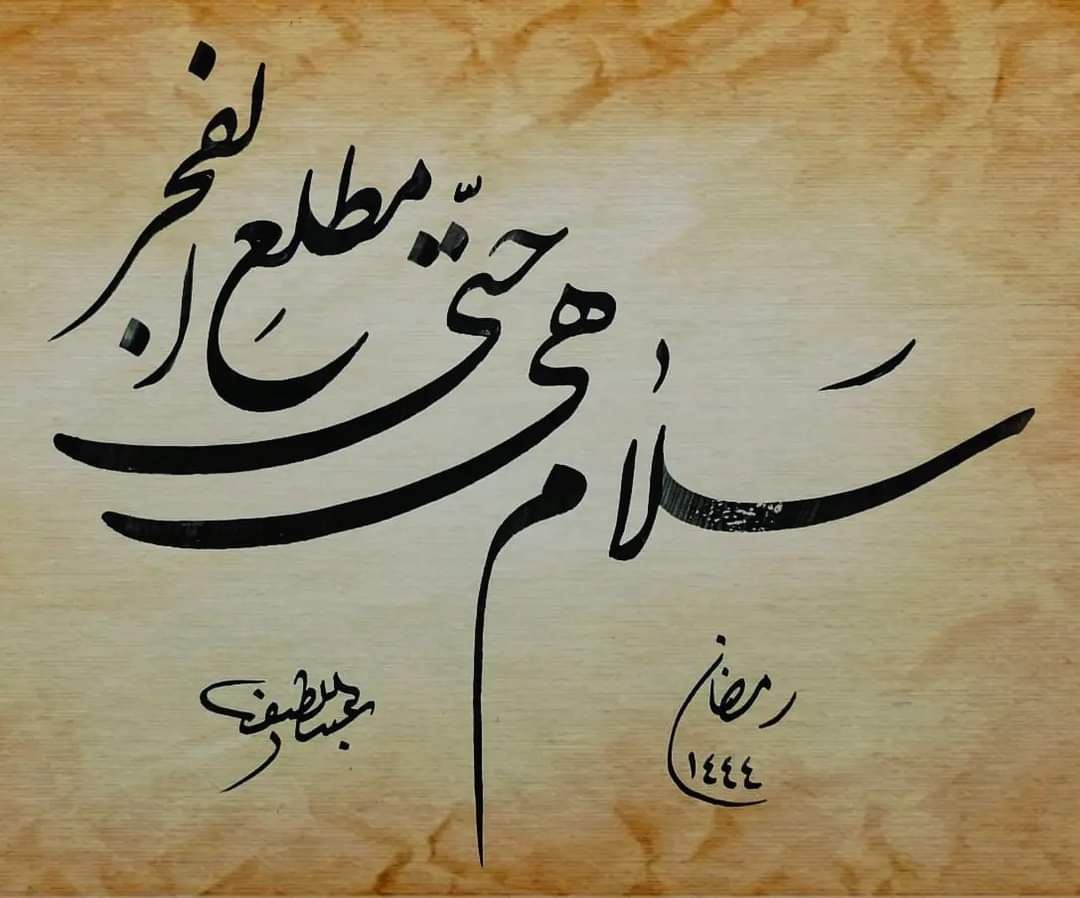 سَلامٌ هي حتّى مطلعَ الفجر
رمضان
١٤٤٤
عبداللطيف